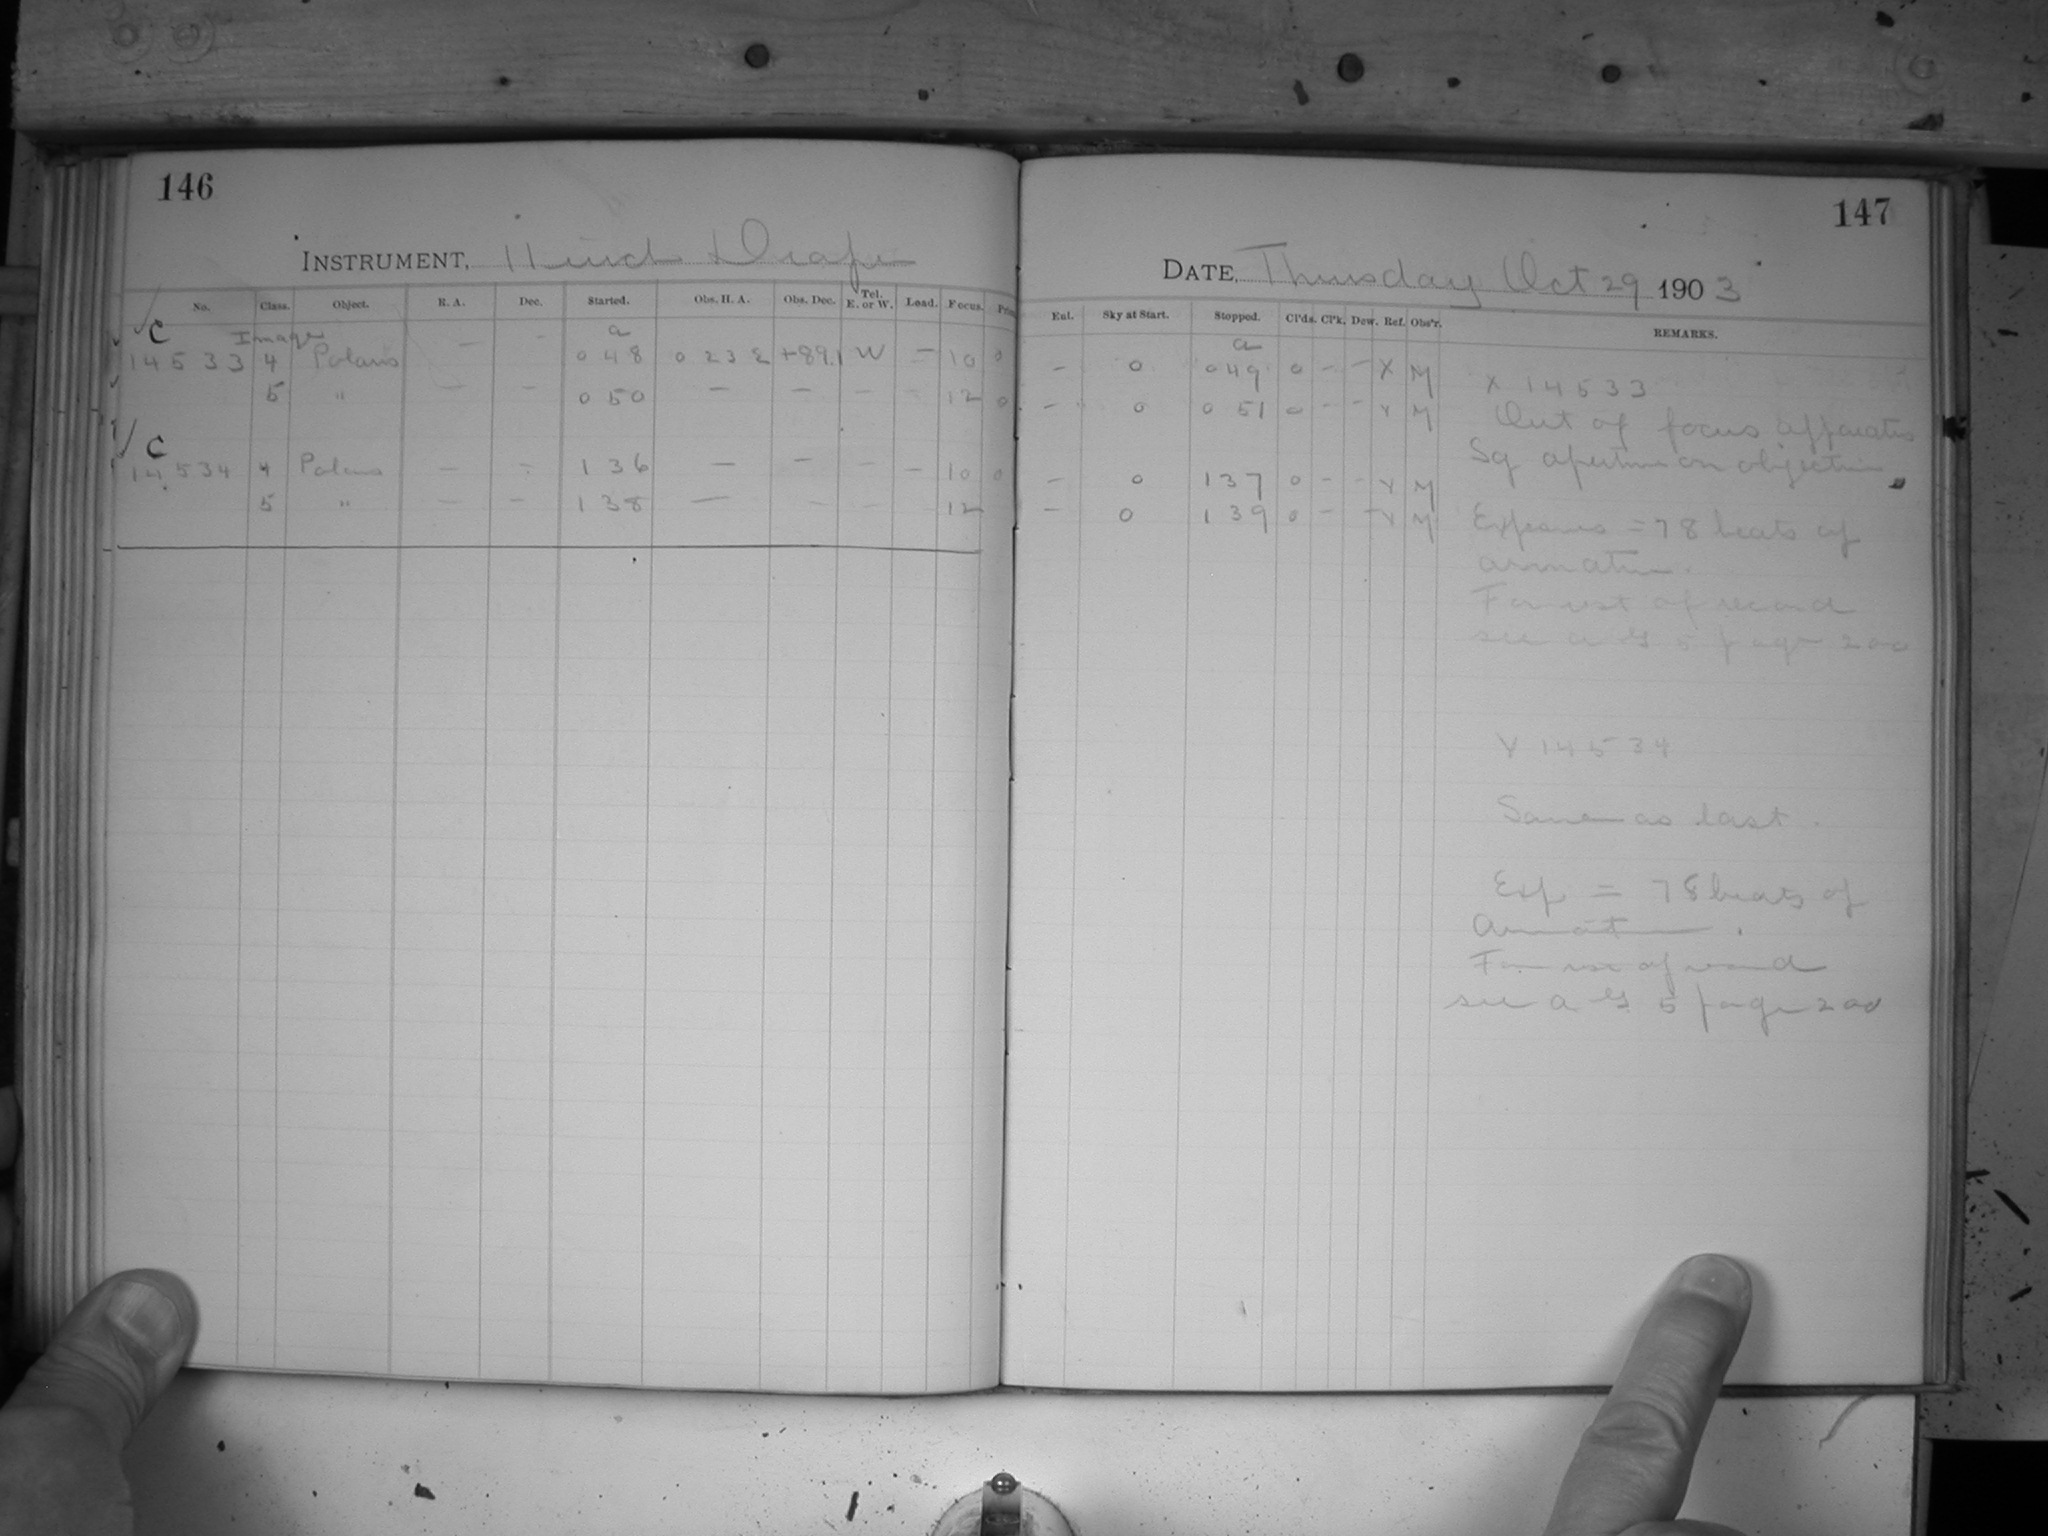 146
INSTRUMENT, 11 inch Draper
No. Class. Object. R. A. Dec. Started. Obs. H. A. Obs. Dec. Tel. E. or W. Load. Focus.
C Image a
14533 4 Polaris - - 0 48 0 23 E +89.1 W - 10 0
5 " - - 0 50 - - - - 12 0
C
14534 4 Polaris - - 1 36 - - - - 10 0
5 " - - 1 38 - - - - 12
147
DATE, Thursday Oct 29 1903
Eut. Sky at Start. Stopped. Cl'ds. Cl'k. Dew. Ref. Obs'r. REMARKS.
a
- 0 0 49 0 - - X M
- 0 0 51 0 - - X M
- 0 1 37 0 - - Y M
- 0 1 39 0 - - Y M
X 14533
Out of focus apparatus
Sq aperture on objective
Exposures = 78 beats of
armature.
For rest of record
see A G 5 page 200
Y 14534
Same as last.
Exp = 78 beats of
Armature.
For rest of record
see A G 5 page 200